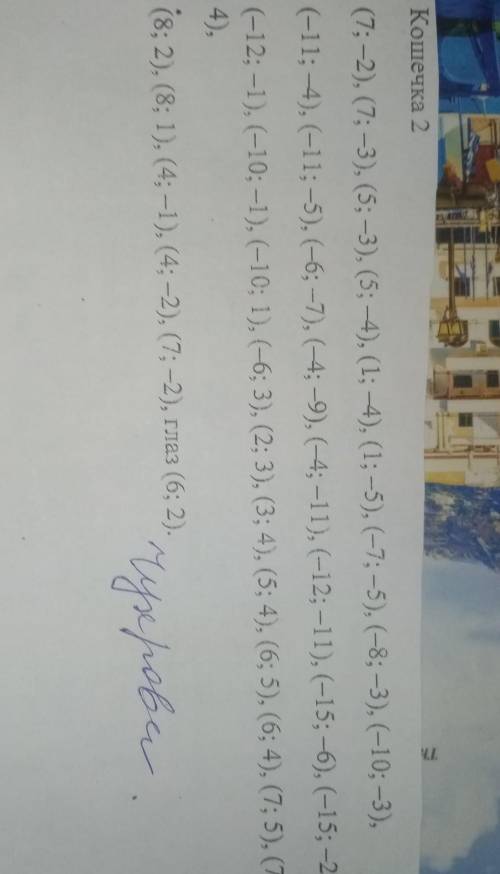 Кошечка 2
(7; −2), (7; −3), (5; −3), (5; −4), (1; −4), (1; −5), (−7; −5), (−8; −3), (−10; −3),
(−11; −4), (−11; −5), (−6; −7), (−4; −9), (−4; −11), (−12; −11), (−15; −6), (−15; −2
(−12; −1), (−10; −1), (−10; 1), (−6; 3), (2; 3), (3; 4), (5; 4), (6; 5), (6; 4), (7; 5), (7
4),
(8; 2), (8; 1), (4; −1), (4; −2), (7; −2), глаз (6; 2).